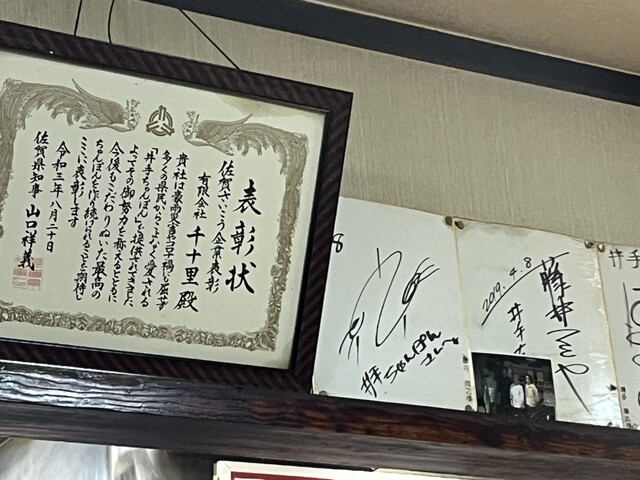 表彰状
佐賀さいこう企業表彰
有限会社 千十里 殿
貴社は豪雨災害やコロナ禍にも屈せず
多くの県民からこよなく愛される
「井手ちゃんぽん」を提供されてきました
よってその御努力を称えるとともに
今後もこだわりぬいた最高の
ちゃんぽんを作り続けられることを期待し
ここに表彰します
令和三年八月二十日
佐賀県知事 山口祥義
8
井手ちゃんぽん
さんへ
2019.4.8
井手